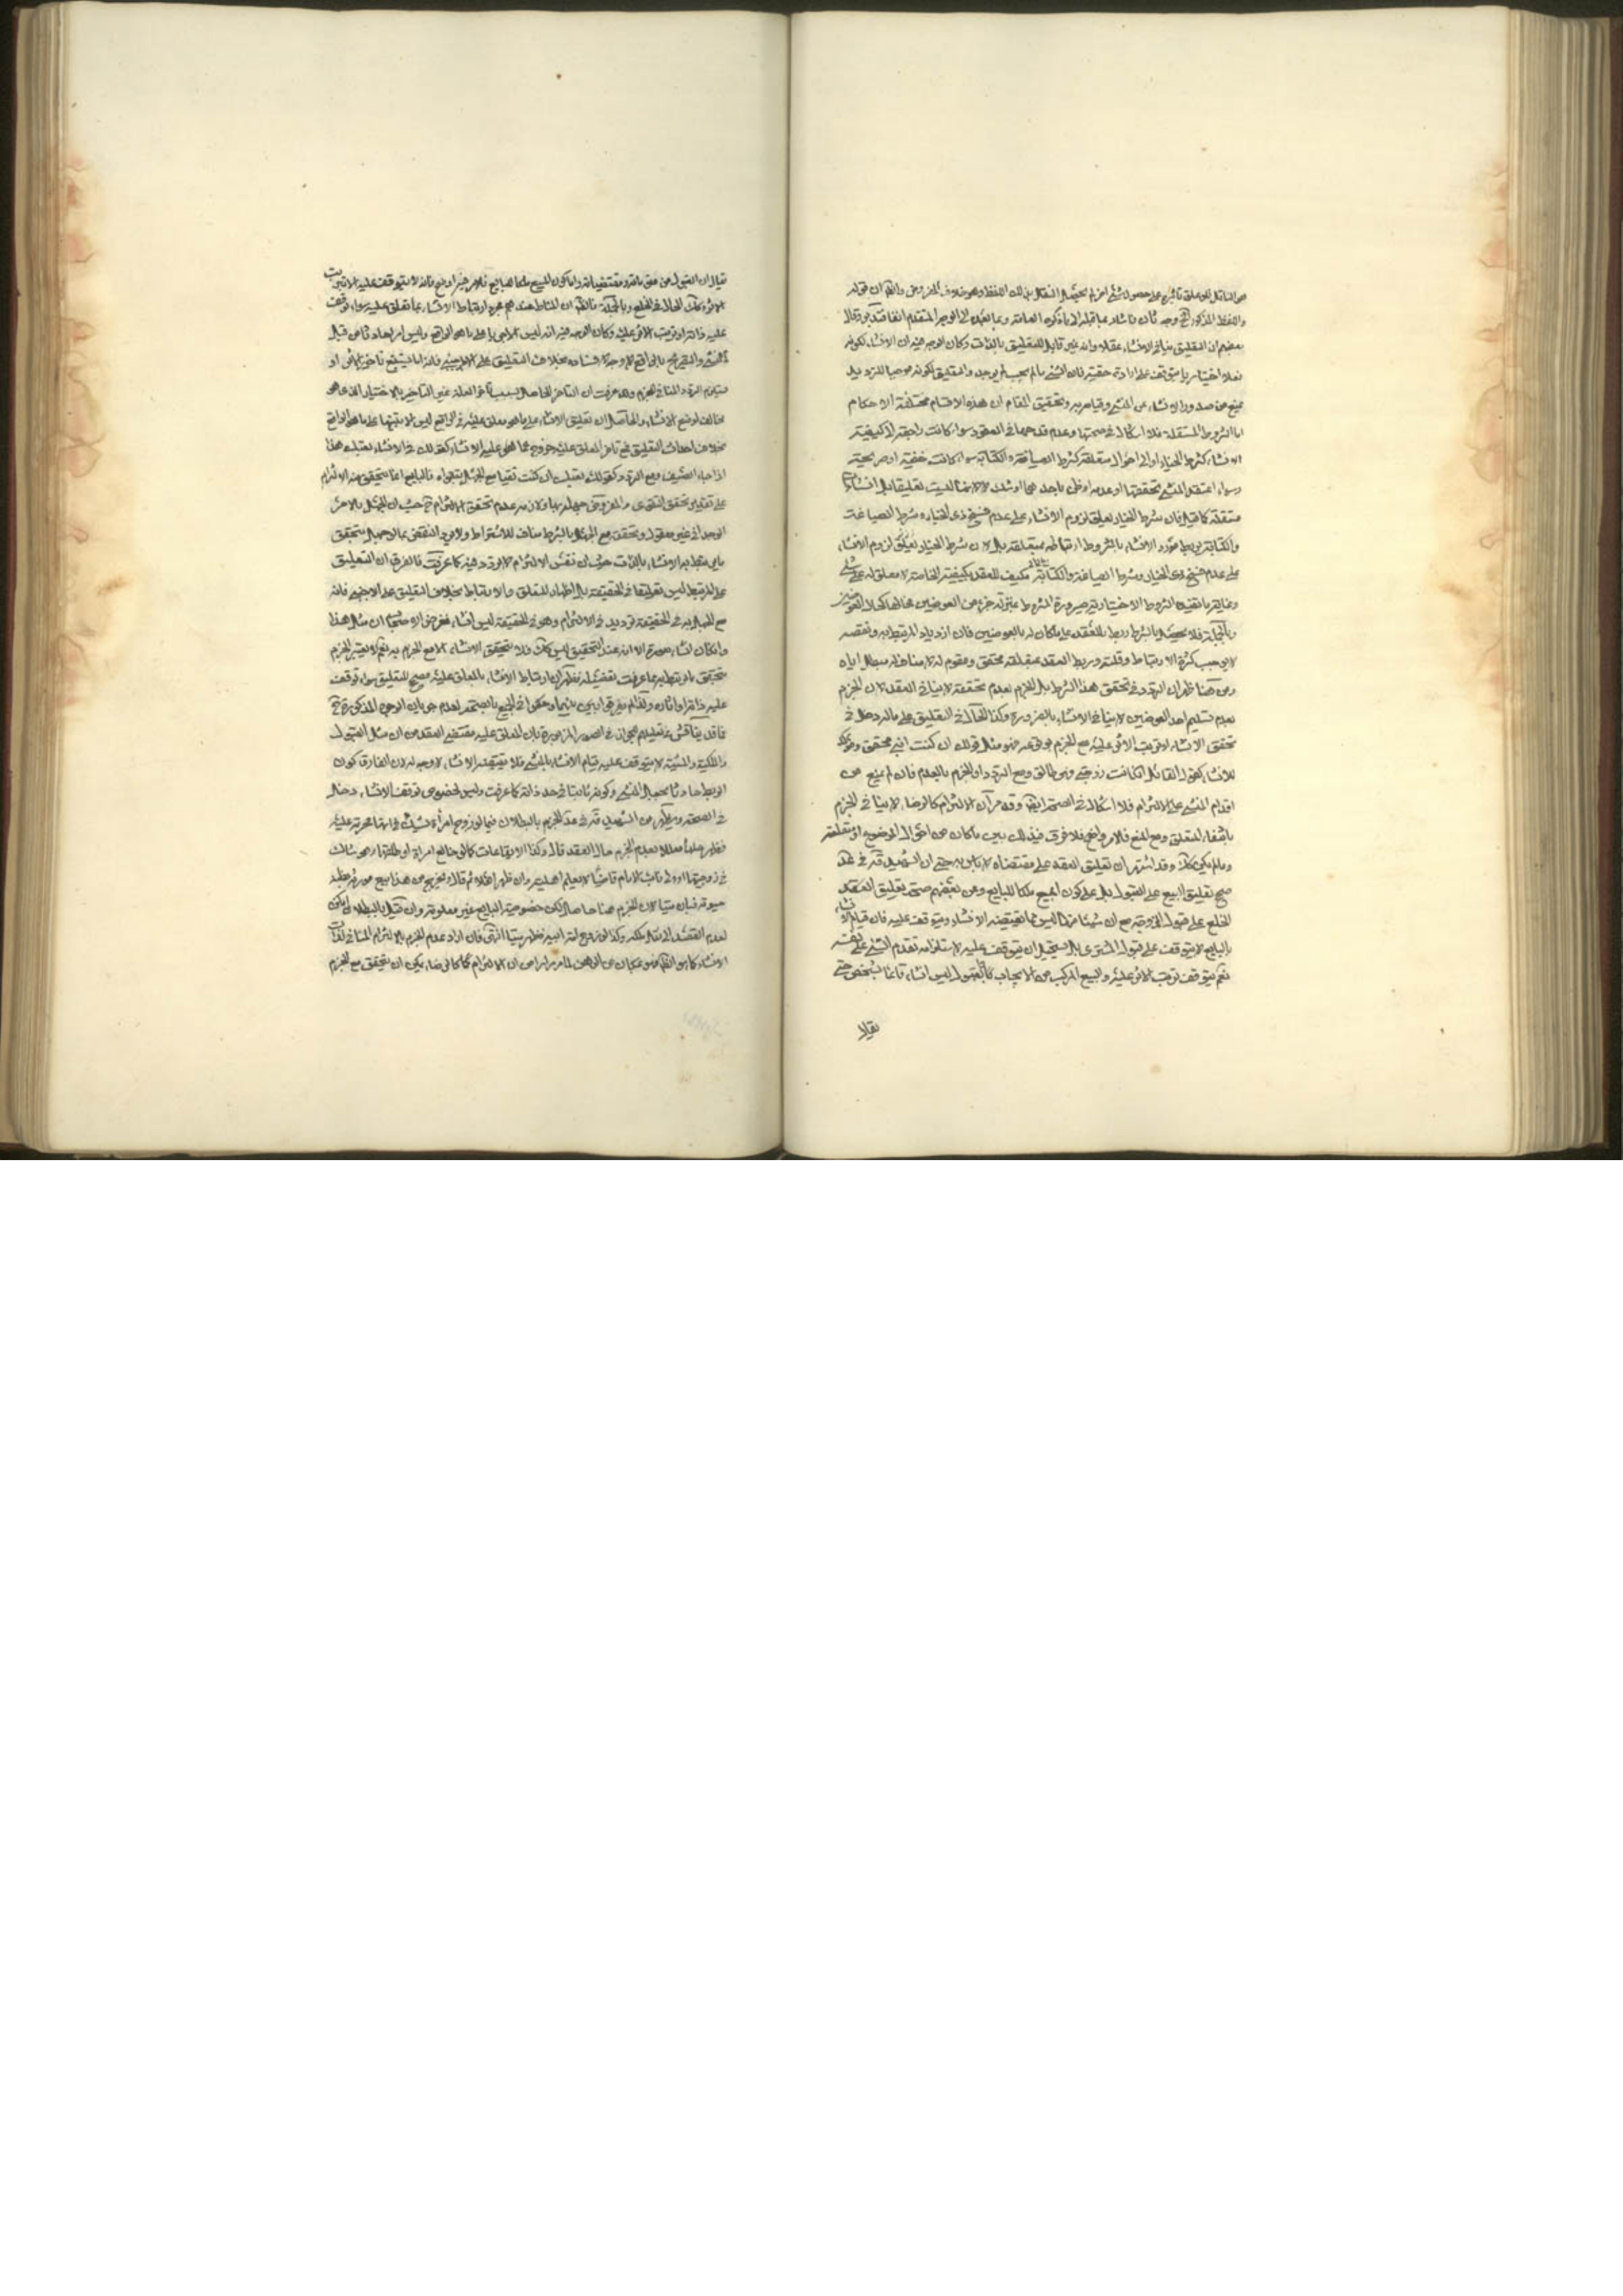 واللفظ المذكور وجه ثان فاشار بما قبله الى ما ذكره العامة وبما بعده الى الوجه المتقدم
بعضهم ان التعليق ينافي الانشاء عقلا وانه غير قابل للتعليق بالذات وكان الوجه فيه ان الانشاء لكونه
فعلا اختياريا يتوقف على ارادة حقيقية فان الشيء ما لم يجب لم يوجد والتعليق لكونه موجبا للترديد
يمنع من صدور الانشاء عن المنشئ وقيامه به وتحقيق المقام ان هذه الاقسام مختلفة الاحكام
اما الشروط المستقلة فلا اشكال في صحتها وعدم قدحها في العقود سواء كانت راجعة الى كيفية
الانشاء كشرط الخيار او الى احوال متعلقه كشرط الصياغة والكتابة سواء كانت خفية او صريحة
وسواء اعتقد المنشئ تحققها او عدمه او ظن باحدهما او شك لانها ليست تعليقا بل انشاء
مستقلة كما قيل فان شرط الخيار تعليق لزوم الانشاء على عدم فسخ ذي الخيار وشرط الصياغة
والكتابة يربط مورد الانشاء بالشروط ارتباطه بمتعلقه بل لان شرط الخيار تعليق لزوم الانشاء
على عدم فسخ ذي الخيار وشرط الصياغة والكتابة مكيف للعقد بكيفيته الخاصة لا معلق له على شئ
وغاية ما تفيده الشروط الاختيارية صيرورة الشروط بمنزلة جزء من العوضين
وبالجملة فلا يحصل بالشرط ربط للعقد على ما كان له بالعوضين فان ازدياد المرتبط به ونقصه
لا يوجب كثرة الارتباط وقلته وربط العقد بمتعلقه محقق ومقوم له لا مناف له مبطل اياه
ومن هنا ظهر ان التردد في تحقق هذا الشرط بل الجزم بعدم تحققه لا ينافي العقد لان الجزم
بعدم تسليم احد العوضين لا ينافي الانشاء بالضرورة وكذا الحال في التعليق على ما له دخل في
تحقق الانشاء او ترتب الاثر عليه مع الجزم
للانشاء كقول القائل ان كانت زوجتي فهي طالق ومع التردد او الجزم بالعدم فان لم يمنع من
اقدام المنشئ على الالتزام فلا اشكال في الصحة ايضا وقد مر ان الالتزام كالرضا لا ينافي الجزم
بانتفاء المتعلق ومع المنع فالامر واضح فلا فرق في ذلك بين ما كان من احوال الموضوع او متعلقه
وما لم يكن كذلك وقد اشتهر ان تعليق العقد على مقتضاه لا باس به حتى ان الشهيد قده في عد
صحح تعليق البيع على القبول بل على كون المبيع ملكا للبايع وعن بعضهم صحة تعليق العقد
الخلع على قبول الزوجة مع ان شيئا منها ليس مما يقتضيه الانشاء ويتوقف عليه فان قيام الانشاء
بالبايع لا يتوقف على قبول المشتري بل يستحيل ان يتوقف عليه لاستلزامه تقدم الشئ على نفسه
نعم يتوقف ترتب الاثر عليه والبيع المركب من الايجاب والقبول ليس انشاء قائما بشخص حتى
يقال
يقال ان القبول من مقوماته ومقتضياته واما كون المبيع ملكا للبايع فالامر فيه اوضح فانه لا يتوقف عليه الا ترتب
الاثر وكذلك الحال في الخلع وبالجملة فالظاهر ان المناط عندهم مجرد ارتباط الانشاء بما تعلق عليه سواء توقف
عليه ذاته او ترتب الاثر عليه وكان الوجه فيه انه ليس الا جريا على ما هو الواقع وليس امرا حادثا من قبل
المنشئ والتصريح بالواقع لا وجه لافساده بخلاف التعليق على الاجنبي فانه اما يستتبع تاخير الاثر او
يستلزم التردد المنافي للجزم وقد عرفت ان التاخر الحاصل بسبب تاخر العلة غير التاخير بالاختيار الذي هو
مخالف لوضع الانشاء والحاصل ان تعليق الانشاء على ما هو معلق عليه في الواقع ليس الا تنبيها على ما هو الواقع
بخلاف احداث التعليق مع تاخر المعلق عليه خروج عما هو عليه الانشاء كقولك في الانشاء بعتك هذا
اذا جاء الضيف ومع التردد كقولك بعتك ان كنت تقيا مع الجهل بتقواه فالبايع انما يتحقق منه الالتزام
على تقدير تحقق التقوى والمفروض جهله بها فلازمه عدم تحقق الالتزام من حيث ان الجهل بالامر
الوجداني غير معقول وتحققه مع الجهل بالشرط مناف للاشتراط ولا يرد النقض بما لاجهل بتحقق
ما يرتبط به الانشاء بالذات حيث ان نفس الالتزام لا تردد فيه كما عرفت فالفرق ان التعليق
على المرتبط ليس تعليقا في الحقيقة بل اظهار للتعلق والارتباط بخلاف التعليق على الاجنبي فانه
مع الجهل به في الحقيقة ترديد في الالتزام وهو في الحقيقة ليس انشاء
وان كان انشاء صورة الا انه عند التحقيق ليس كذلك فلا يتحقق الانشاء الا مع الجزم به نعم لا يعتبر الجزم
بتحقق ما يرتبط به بما عرفت تفصيله فظهر ان ارتباط الانشاء بالمعلق عليه مصحح للتعليق سواء توقف
عليه ذاته او اثاره ولذا لم يفرقوا بين بينهما وحكموا في الجميع بالصحة لعدم جريان الوجوه المذكورة
فما قد يناقش في تعليلهم الجواز في الصور المزبورة بان المعلق عليه مقتضى العقد من ان مثل القبول
والملكية والمشية لا يتوقف عليه قيام الانشاء بالمنشئ فلا يقتضيه الانشاء لا وجه له لان الفارق كون
الربط حادثا بجعل المنشئ وكونه ثابتا في حد ذاته كما عرفت وليس لخصوص توقف الانشاء دخل
في الصحة ويظهر من الشهيد قده في عد الجزم بالبطلان فيما لو زوج امراة يشك في انها محرمة عليه
فظهر حلها معللا بعدم الجزم حال العقد قال وكذا الايقاعات كما لو خالع امراة او طلقها وهو شاك
في زوجيتها او ولى نائب الامام قاضيا لا يعلم اهليته وان ظهر اهلا ثم قال ويخرج من هذا بيع مورثه لظنه
حيوته فبان ميتا لان الجزم هنا حاصل لكن خصوصية البايع غير معلومة وان قيل بالبطلان امكن
لعدم القصد الى نقل ملكه وكذا لو زوج امة ابيه فظهر ميتا انتهى فان اراد عدم الجزم بالالتزام المنافي لذات
الانشاء كما هو الظاهر فهو بمكان من الوهن لما مر مرارا من ان الالتزام كالرضا يمكن ان يتحقق مع الجزم